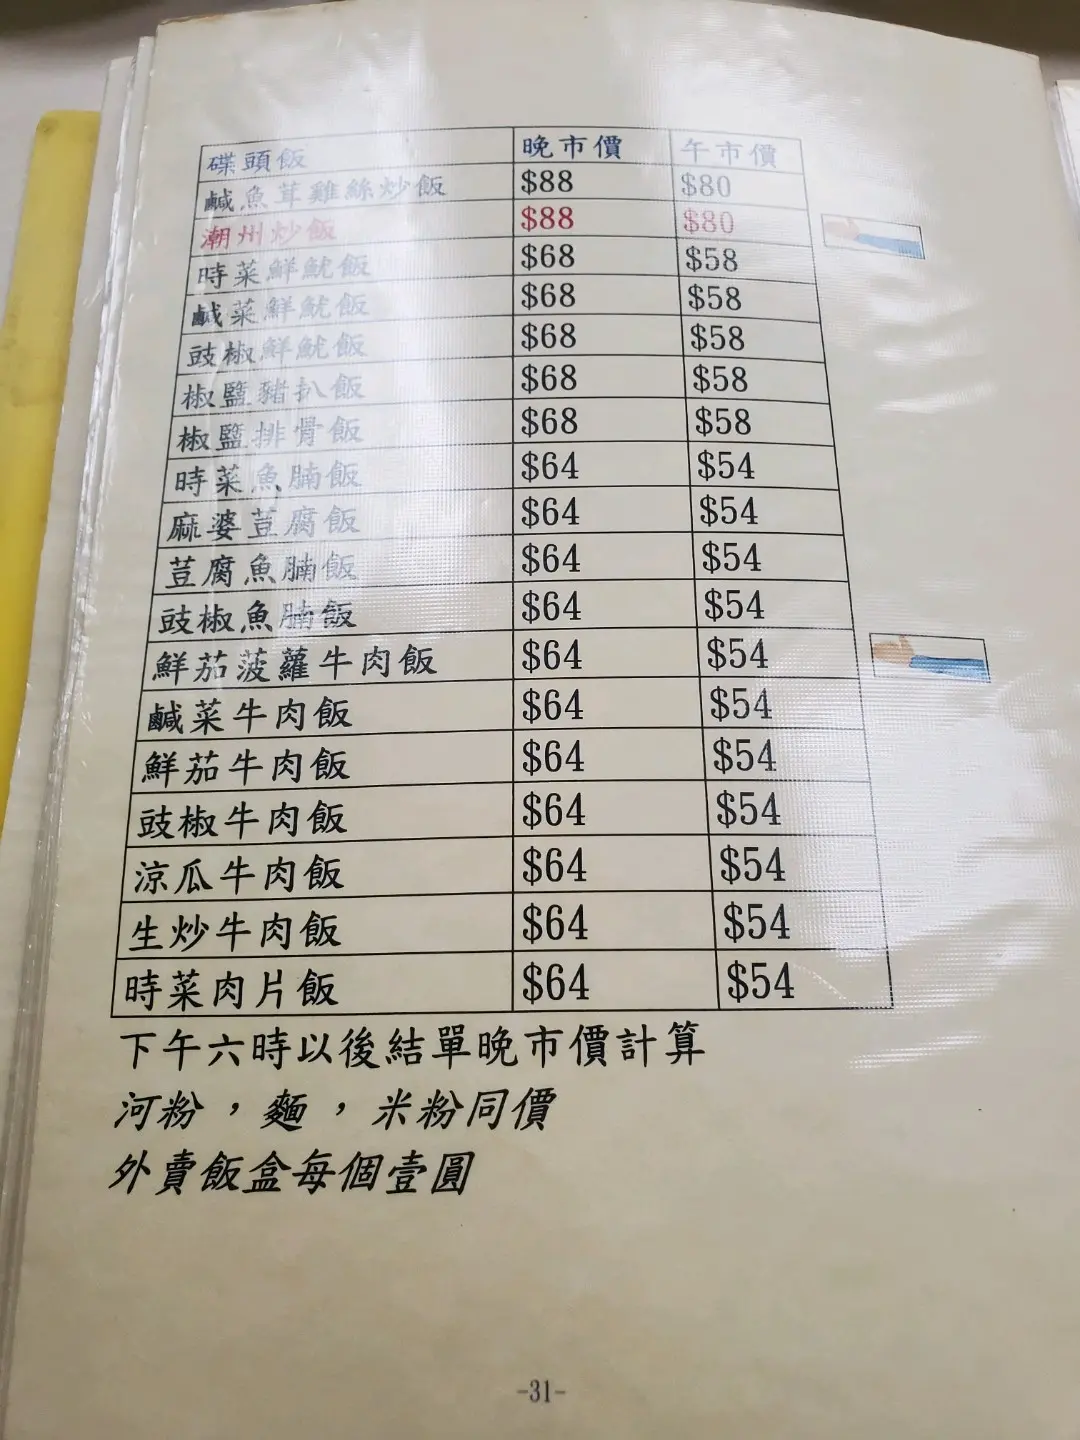 碟頭飯 晚市價 午市價
鹹魚茸雞絲炒飯 $88 $80
潮州炒飯 $88 $80
時菜鮮魷飯 $68 $58
鹹菜鮮魷飯 $68 $58
豉椒鮮魷飯 $68 $58
椒鹽豬扒飯 $68 $58
椒鹽排骨飯 $68 $58
時菜魚腩飯 $64 $54
麻婆荳腐飯 $64 $54
荳腐魚腩飯 $64 $54
豉椒魚腩飯 $64 $54
鮮茄菠蘿牛肉飯 $64 $54
鹹菜牛肉飯 $64 $54
鮮茄牛肉飯 $64 $54
豉椒牛肉飯 $64 $54
涼瓜牛肉飯 $64 $54
生炒牛肉飯 $64 $54
時菜肉片飯 $64 $54
下午六時以後結單晚市價計算
河粉，麵，米粉同價
外賣飯盒每個壹圓
-31-